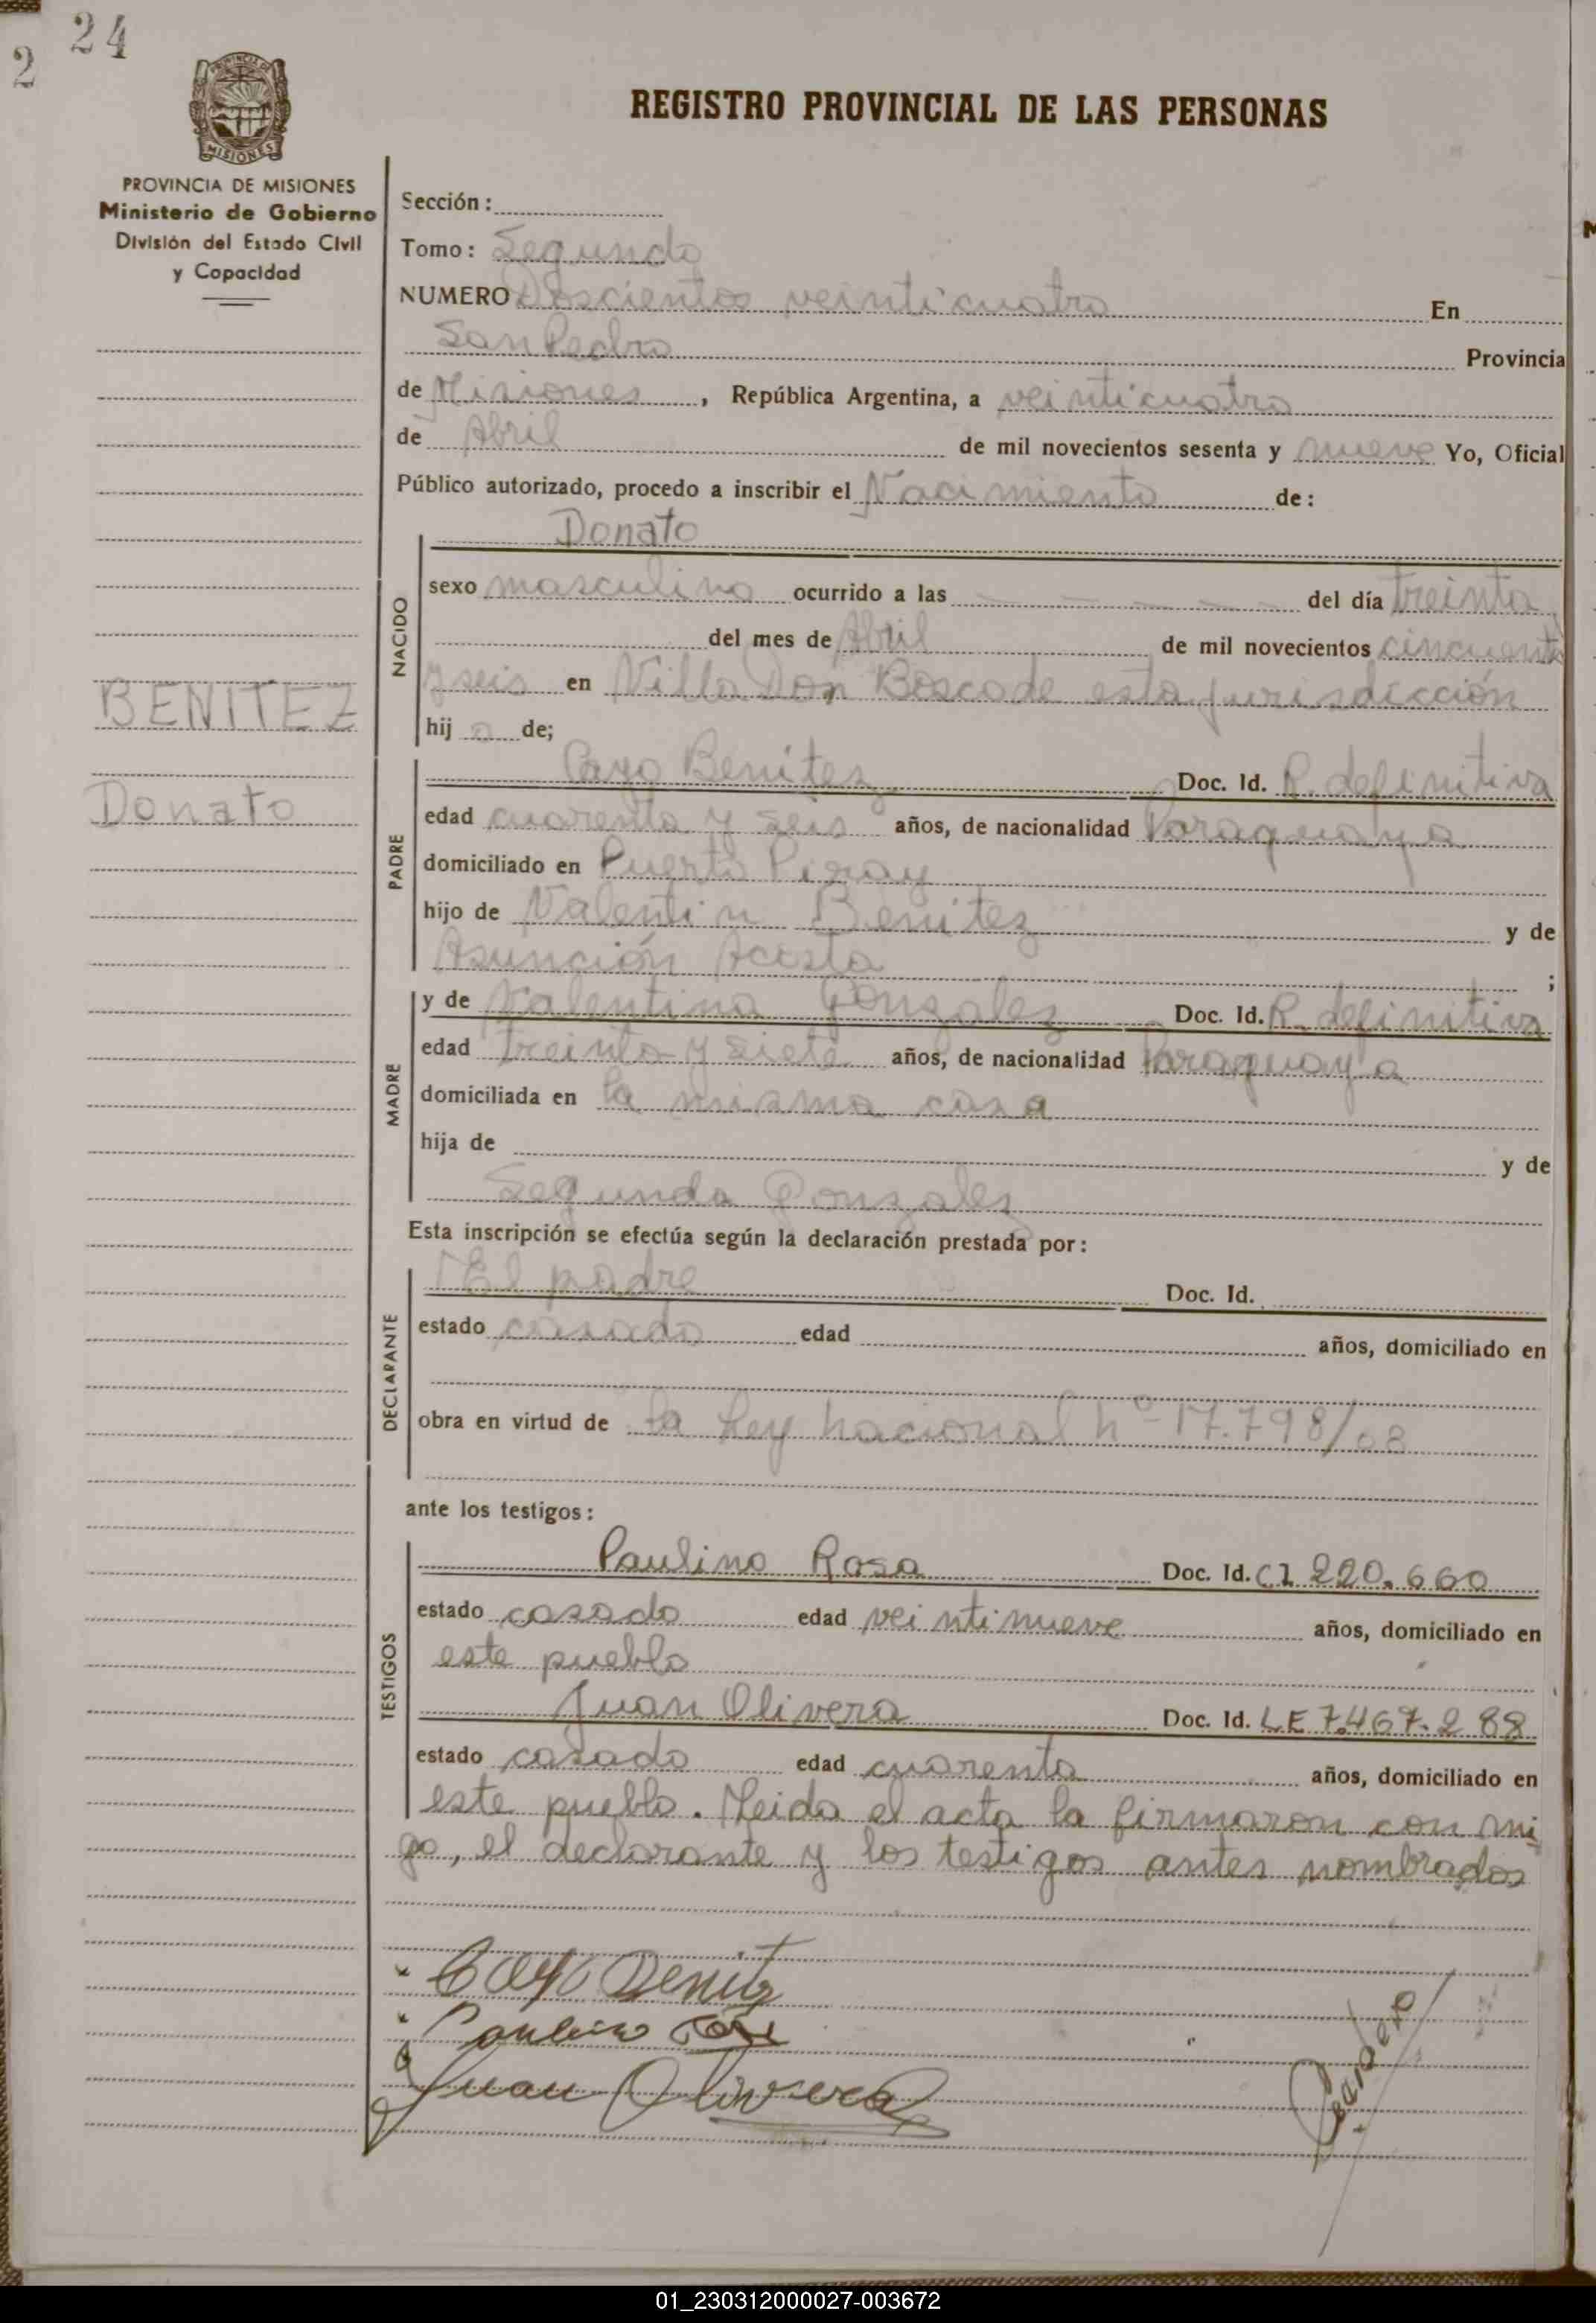 224
PROVINCIA DE MISIONES
PROVINCIA DE MISIONES
Ministerio de Gobierno
División del Estado Civil
y Capacidad
REGISTRO PROVINCIAL DE LAS PERSONAS
Sección:
Tomo: Segundo
NUMERO Doscientos veinticuatro En
San Pedro Provincia
de Misiones, República Argentina, a veinticuatro
de Abril de mil novecientos sesenta y nueve Yo, Oficial
Público autorizado, procedo a inscribir el Nacimiento de:
NACIDO
Donato
sexo masculino ocurrido a las — — — — — del día treinta
del mes de Abril de mil novecientos cincuenta
y seis en Villa Don Bosco de esta jurisdicción
BENITEZ
hij o de;
PADRE
Cayo Benitez Doc. Id. R. definitiva
Donato
edad cuarenta y seis años, de nacionalidad Paraguaya
domiciliado en Puerto Piray
hijo de Valentin Benitez y de
Asunción Acosta ;
MADRE
y de Valentina Gonzalez Doc. Id. R. definitiva
edad treinta y siete años, de nacionalidad Paraguaya
domiciliada en la misma casa
hija de y de
Segunda Gonzalez
Esta inscripción se efectúa según la declaración prestada por:
DECLARANTE
El padre Doc. Id.
estado casado edad años, domiciliado en
obra en virtud de la Ley nacional nº 17.798/68
ante los testigos:
TESTIGOS
Paulino Rosa Doc. Id. CI 220.660
estado casado edad veintinueve años, domiciliado en
este pueblo
Juan Olivera Doc. Id. LE 7.467.288
estado casado edad cuarenta años, domiciliado en
este pueblo. Leida el acta la firmaron con mi
go, el declarante y los testigos antes nombrados
Cayo Benitz
Juan Olivera
01_230312000027-003672